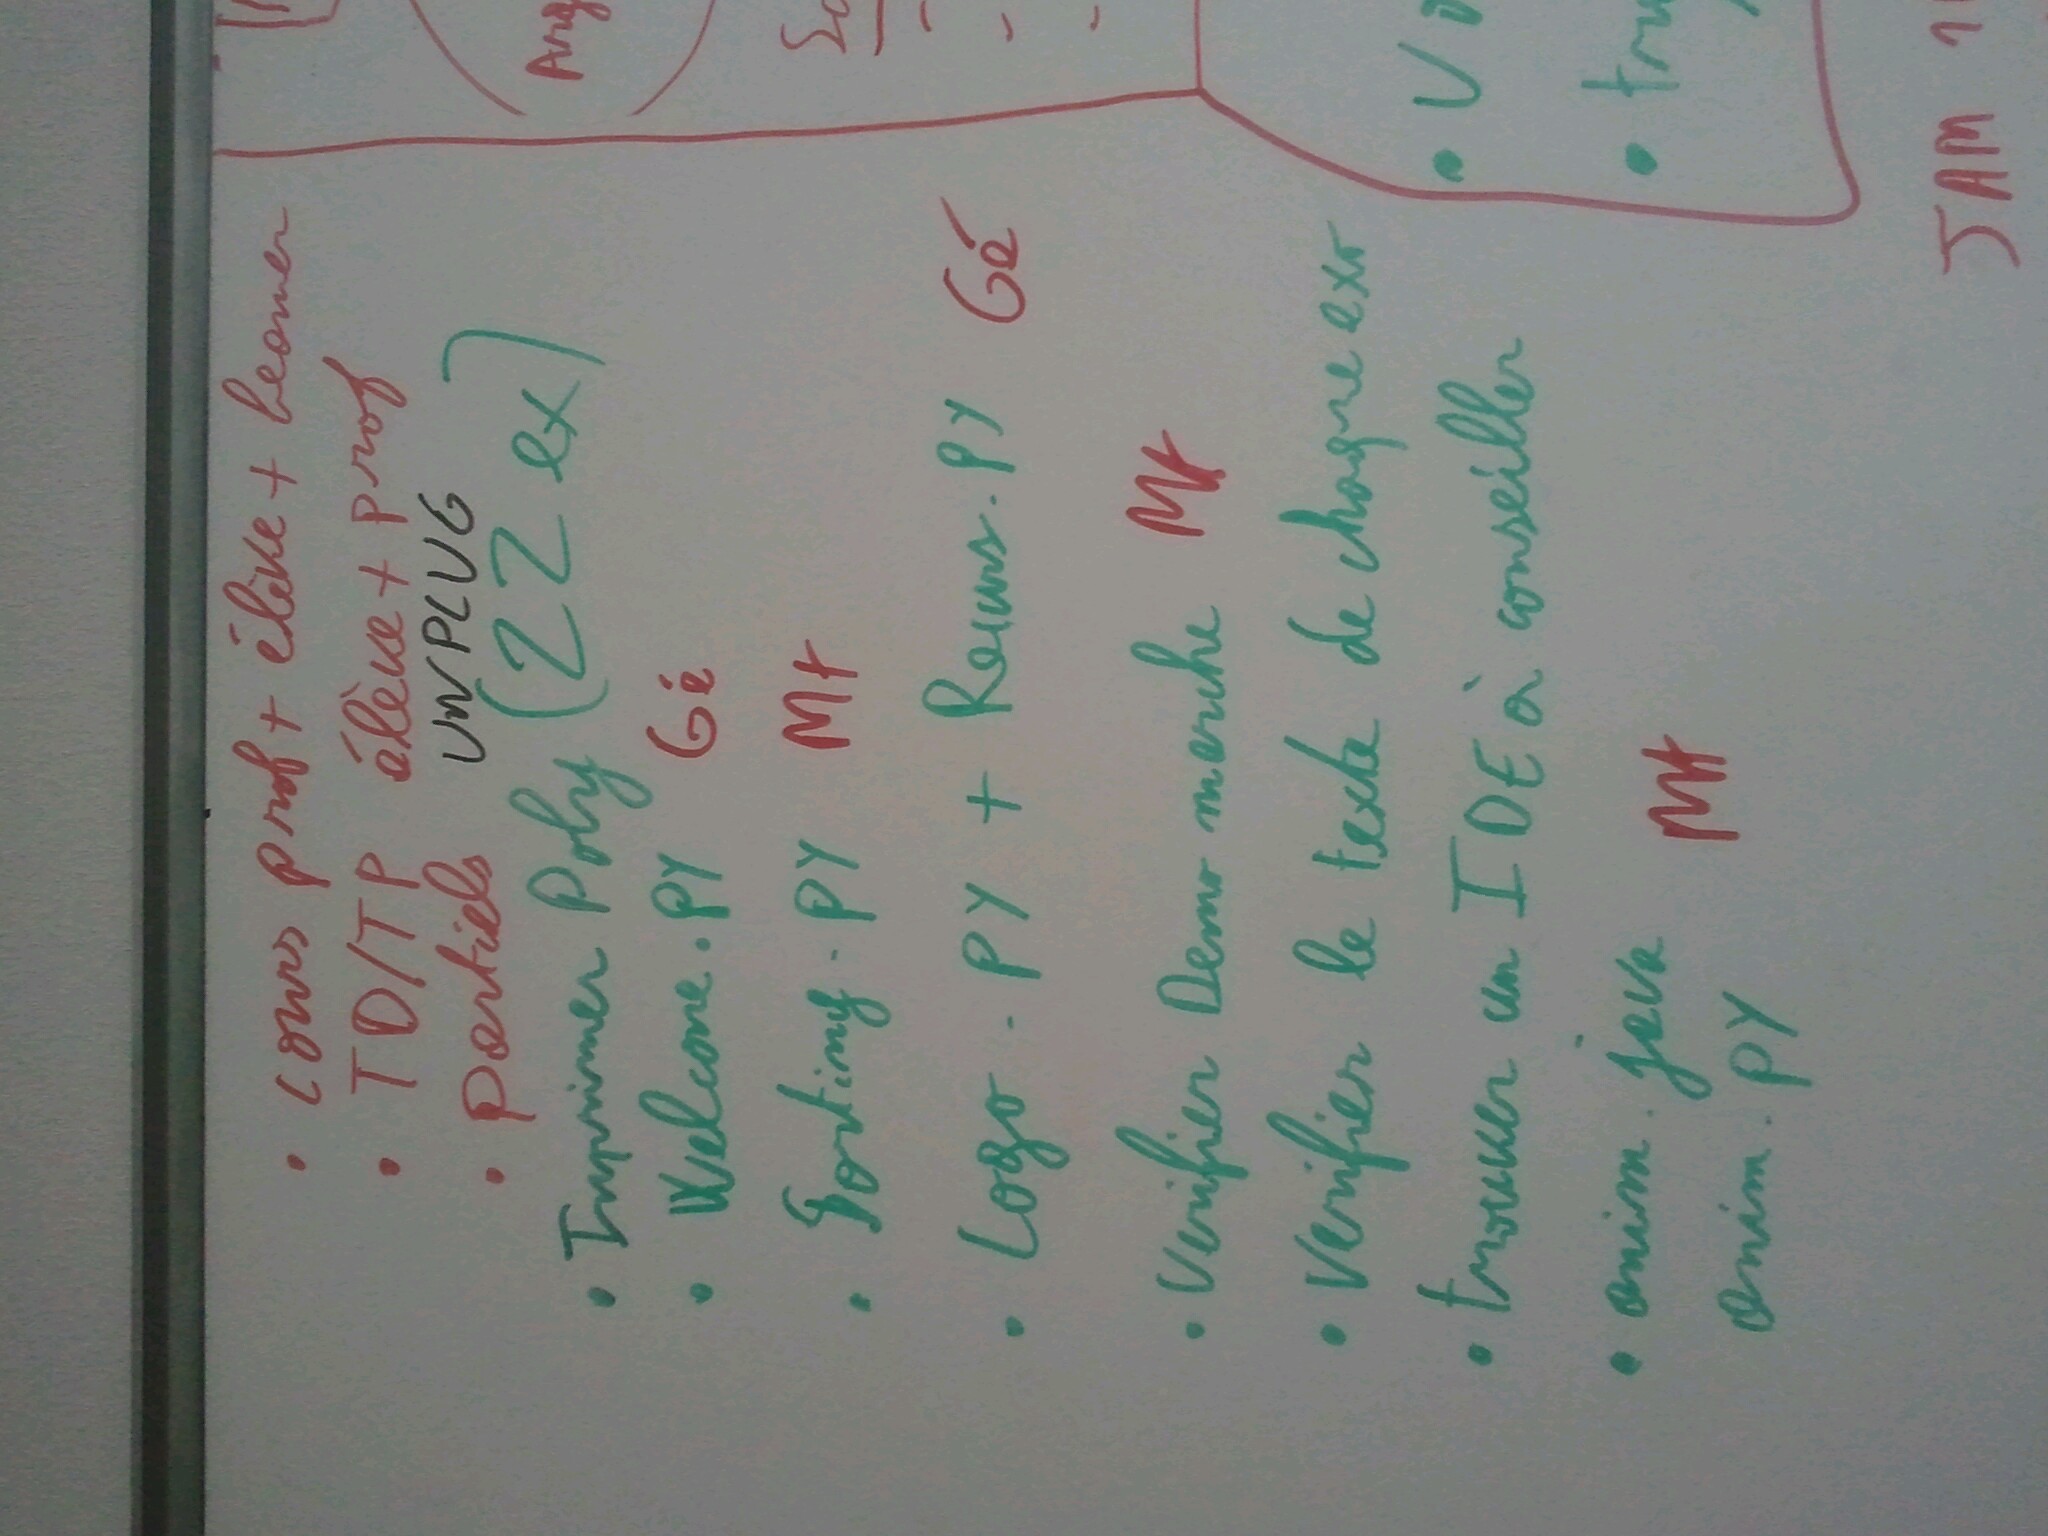 • cours prof + élève + beamer
• TD/TP élève + prof
• partiels UNPLUG
• Imprimer Poly (22 ex)
• Welcome.py Gé
• Sorting.py Mt
• Logo.py + Recurs.py Gé
• Verifier Demo marche Mt
• Verifier le texte de chaque exo
• trouver un IDE à conseiller
• anim.java
Mt
anim.py
Arg
JAM